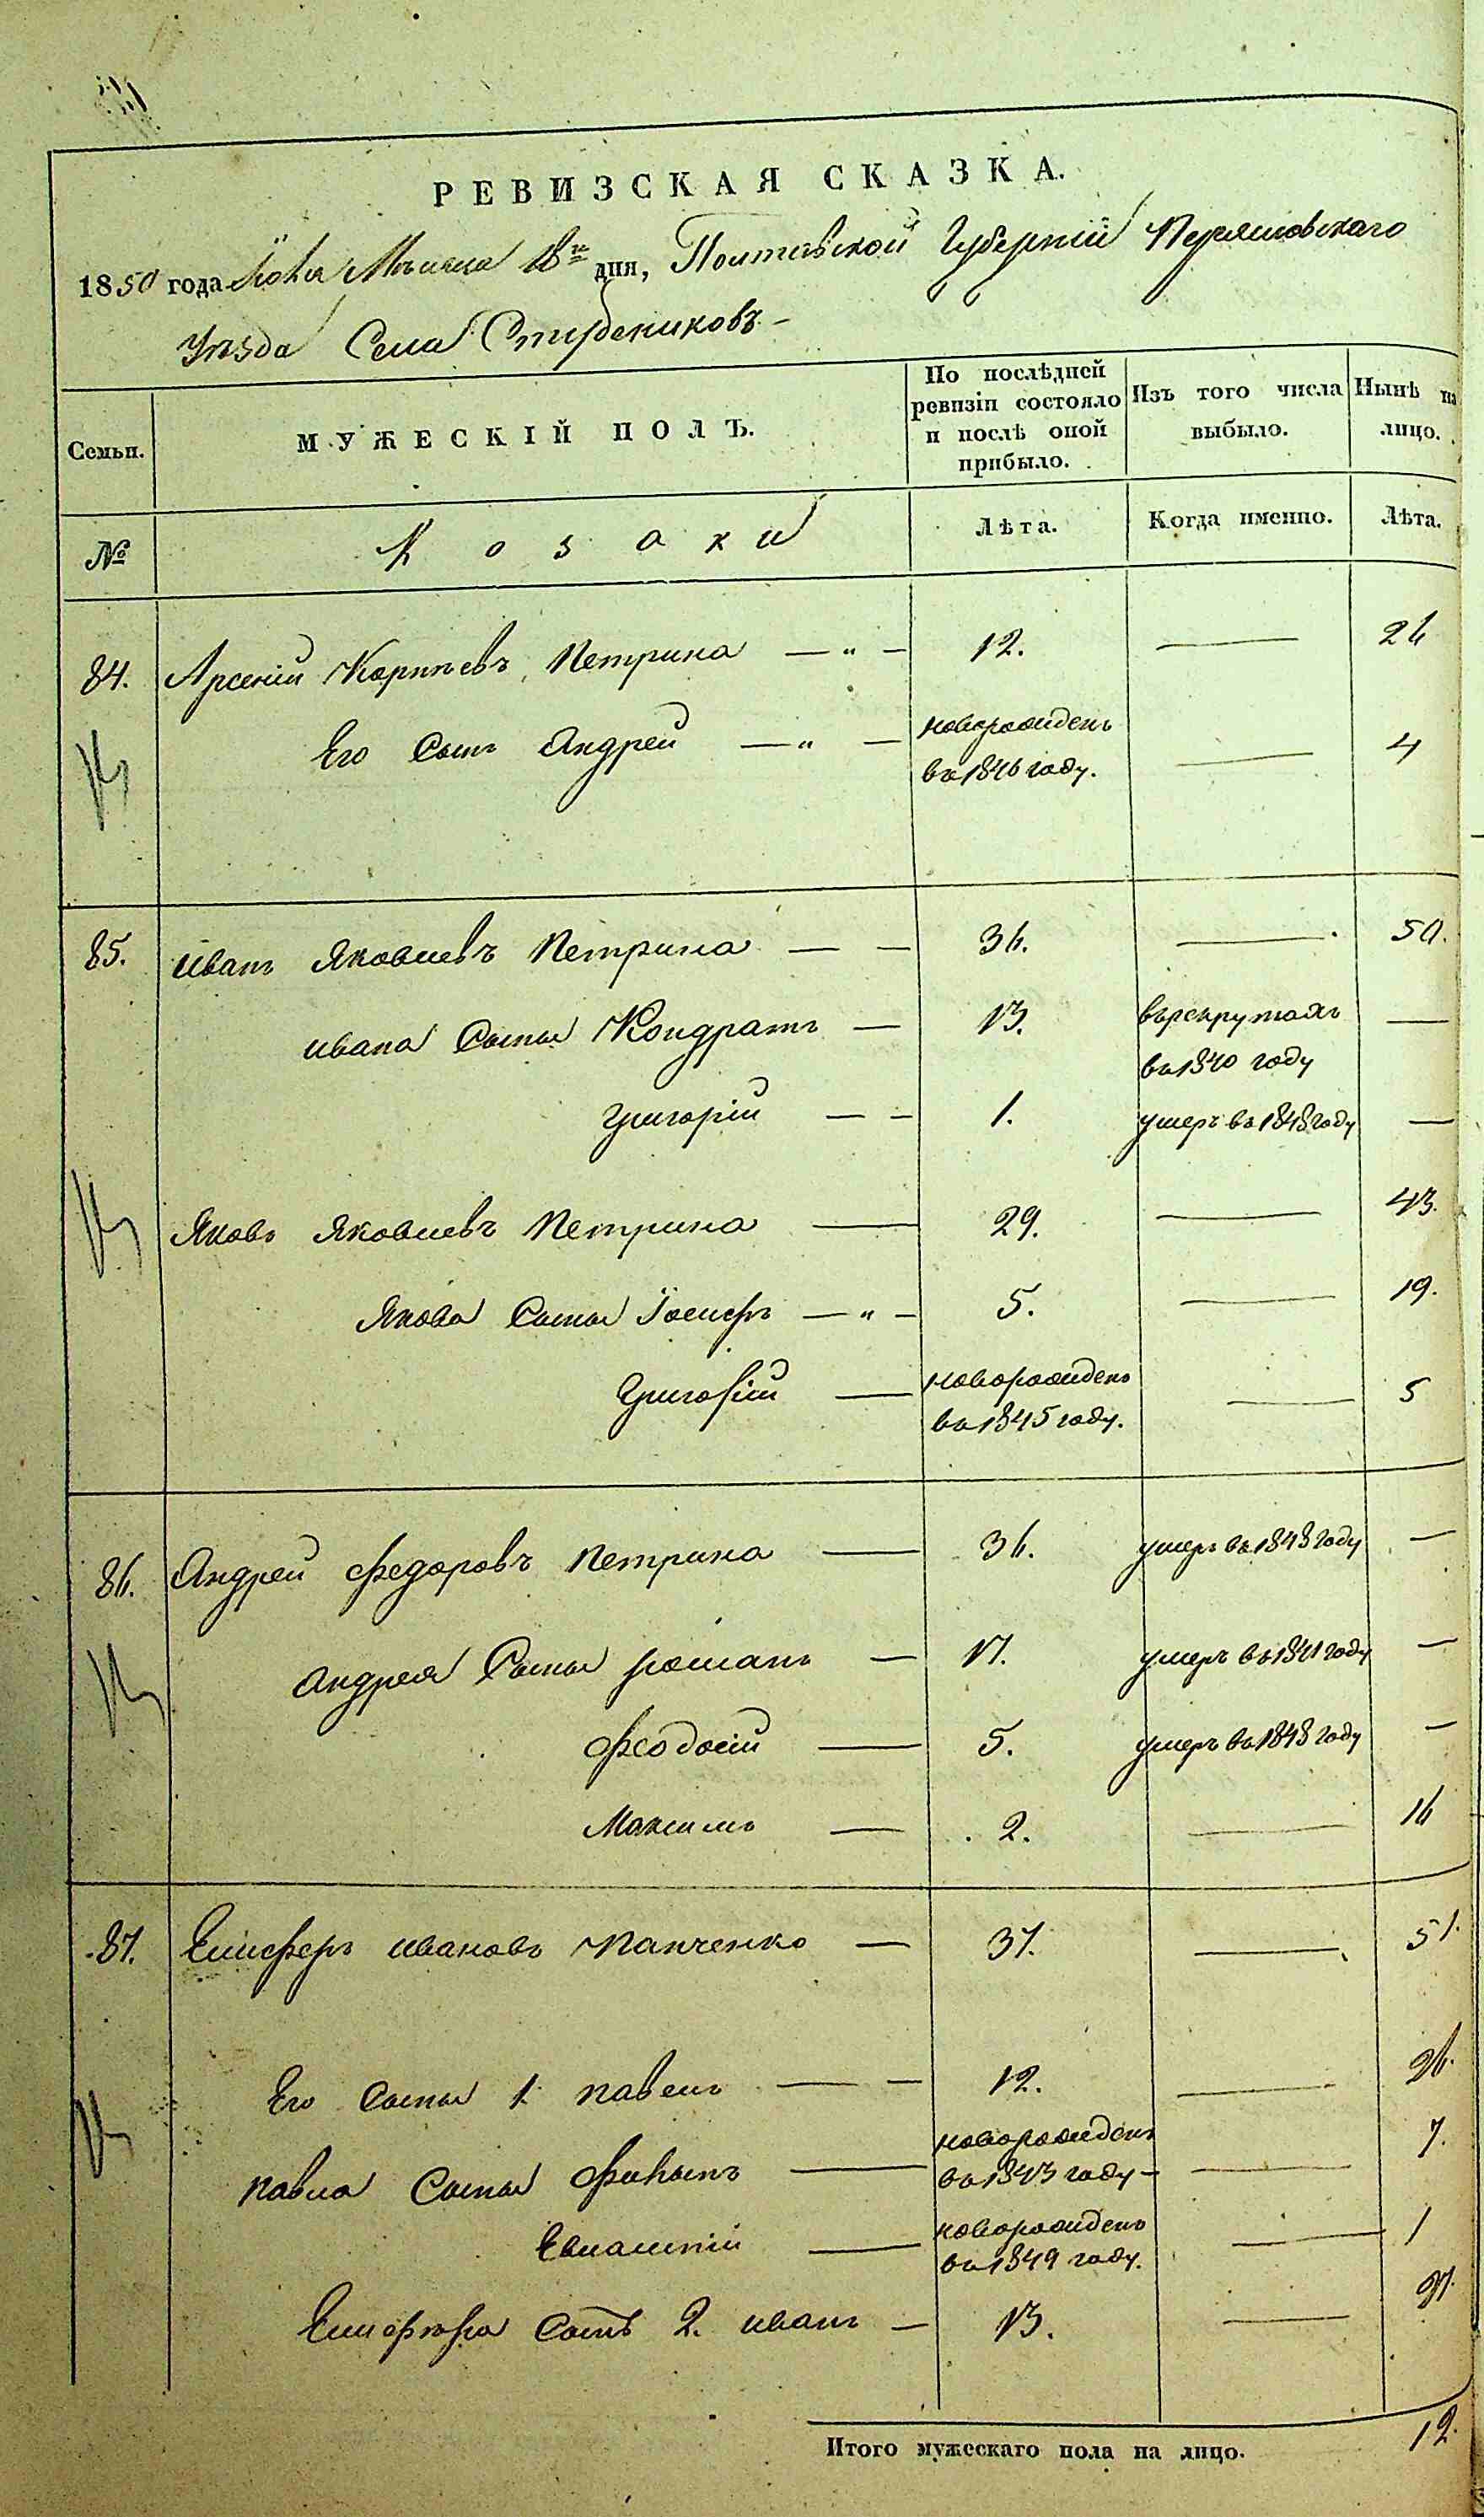 РЕВИЗСКАЯ СКАЗКА.
1850 года Июня Мѣсяца 18го дня, Полтавской Губерніи Переяславскаго
Уѣзда Села Студениковъ -
Семьи. МУЖЕСКІЙ ПОЛЪ. По послѣдней ревизіи состояло и послѣ оной прибыло. Изъ того числа выбыло. Нынѣ на лицо.
№ Козаки Лѣта. Когда именно. Лѣта.
84. Арсеній Корнѣевъ Петрина — „ — 12. — 26
Его Сынъ Андрей — „ — новорожденъ въ 1846 году. — 4
85. Иванъ Яковлевъ Петрина — — 36. — 50.
Ивана Сыны Кондратъ — 13. въ рекрутахъ въ 1840 году —
Григорій — — 1. умеръ въ 1848 году —
Яковъ Яковлевъ Петрина — 29. — 43.
Якова Сыны Іосифъ — „ — 5. — 19.
Григорій — новорожденъ въ 1845 году. — 5
86. Андрей Федоровъ Петрина — 36. умеръ въ 1848 году —
Андрея Сыны Романъ — 17. умеръ въ 1841 году —
Феодосій — 5. умеръ въ 1848 году —
Максимъ — 2. — 16
87. Елисферъ Ивановъ Панченко — 37. — 51.
Его Сыны 1. Павелъ — — 12. — 26.
Павла Сыны — новорожденъ въ 1843 году — — 7.
Евлампій — новорожденъ въ 1849 году. — 1
Елисфера Сынъ 2. Иванъ — 13. — 27.
Итого мужескаго пола на лицо. 12.